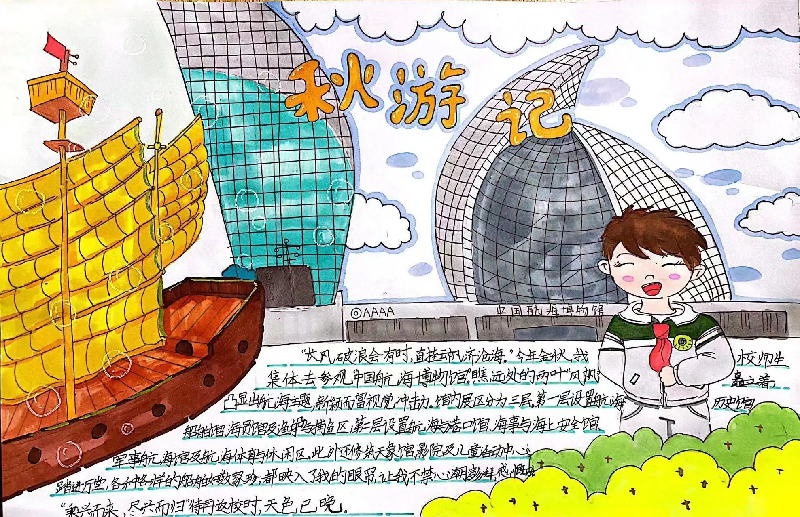 秋游记
◎AAAA
中国航海博物馆
“长风破浪会有时,直挂云帆济沧海。”今年金秋,我校师生
集体去参观中国航海博物馆"瞧远处的两叶"风帆
凸显航海主题,新颖而富视觉冲击力。馆内展区分为三层,第一层设置航海历史馆
船舶馆,海员馆及渔船与捕鱼区,第二层设置航海与港口馆,海事与海上安全馆
军事航海馆及航海体育与休闲区,此外还修筑天象馆影院及儿童活动中心
踏进万堂,各种各样的船舶木数家功,都映入了我的眼帘,让我不禁心潮澎湃,感慨
“乘兴而来,尽兴而归”待再返校时,天色已晚。